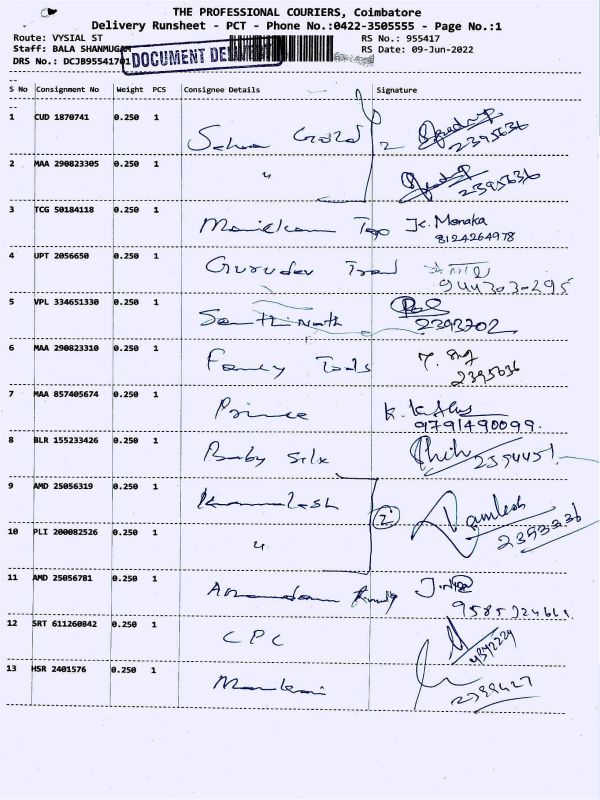 THE PROFESSIONAL COURIERS, Coimbatore
Delivery Runsheet - PCT - Phone No.:0422-3505555 - Page No.:1
Route: VYSIAL ST RS No.: 955417
Staff: BALA SHANMUGAM RS Date: 09-Jun-2022
DRS No.: DCJB95541701 DOCUMENT
S No Consignment No Weight PCS Consignee Details Signature
1 CUD 1870741 0.250 1 2 2395636
2 MAA 290823305 0.250 1 " 2395636
3 TCG 50184118 0.250 1 Manickam K. Monaka
8124264978
4 UPT 2056650 0.250 1 Gurudev Trad
944303-295
5 VPL 334651330 0.250 1 Santhinath
2393702
6 MAA 290823310 0.250 1 Fancy Tools
2395636
7 MAA 857405674 0.250 1 Prince
9791490099.
8 BLR 155233426 0.250 1 Baby Silk 2394451
9 AMD 25056319 0.250 1 Kamalesh 2 Kamlesh
10 PLI 200082526 0.250 1 " 2393336
11 AMD 25056781 0.250 1
12 SRT 611260842 0.250 1 CPC
13 HSR 2401576 0.250 1